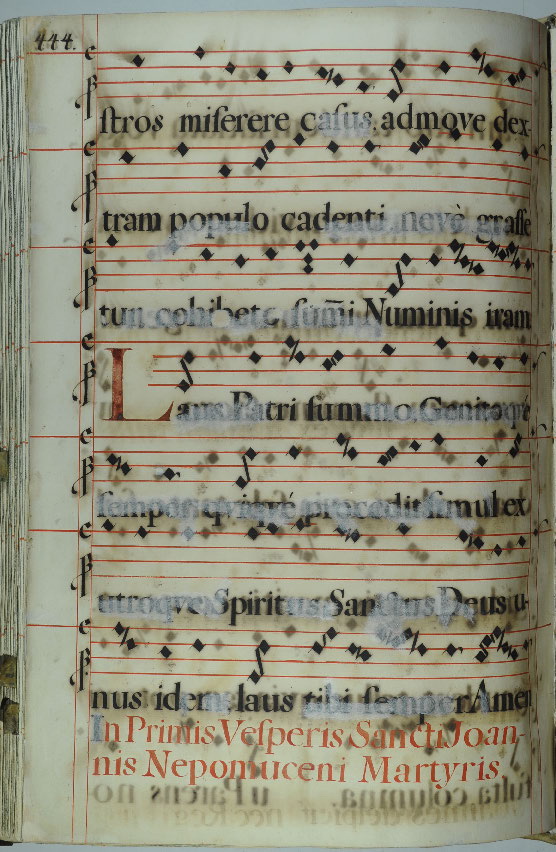 444.
ſtros miſerere caſus admove dex-
tram populo cadenti neve graſſe
tur cohibete sum̄i Numinis iram
Laus Patri ſummo Genitoqȝ
ſemper quiqué procedit ſimul ex
utroqve Spiritus Sanctus Deus u-
nus idem laus tibi ſemper Amen
In Primis Veſperis Sancti Joan-
nis Nepomuceni Martyris